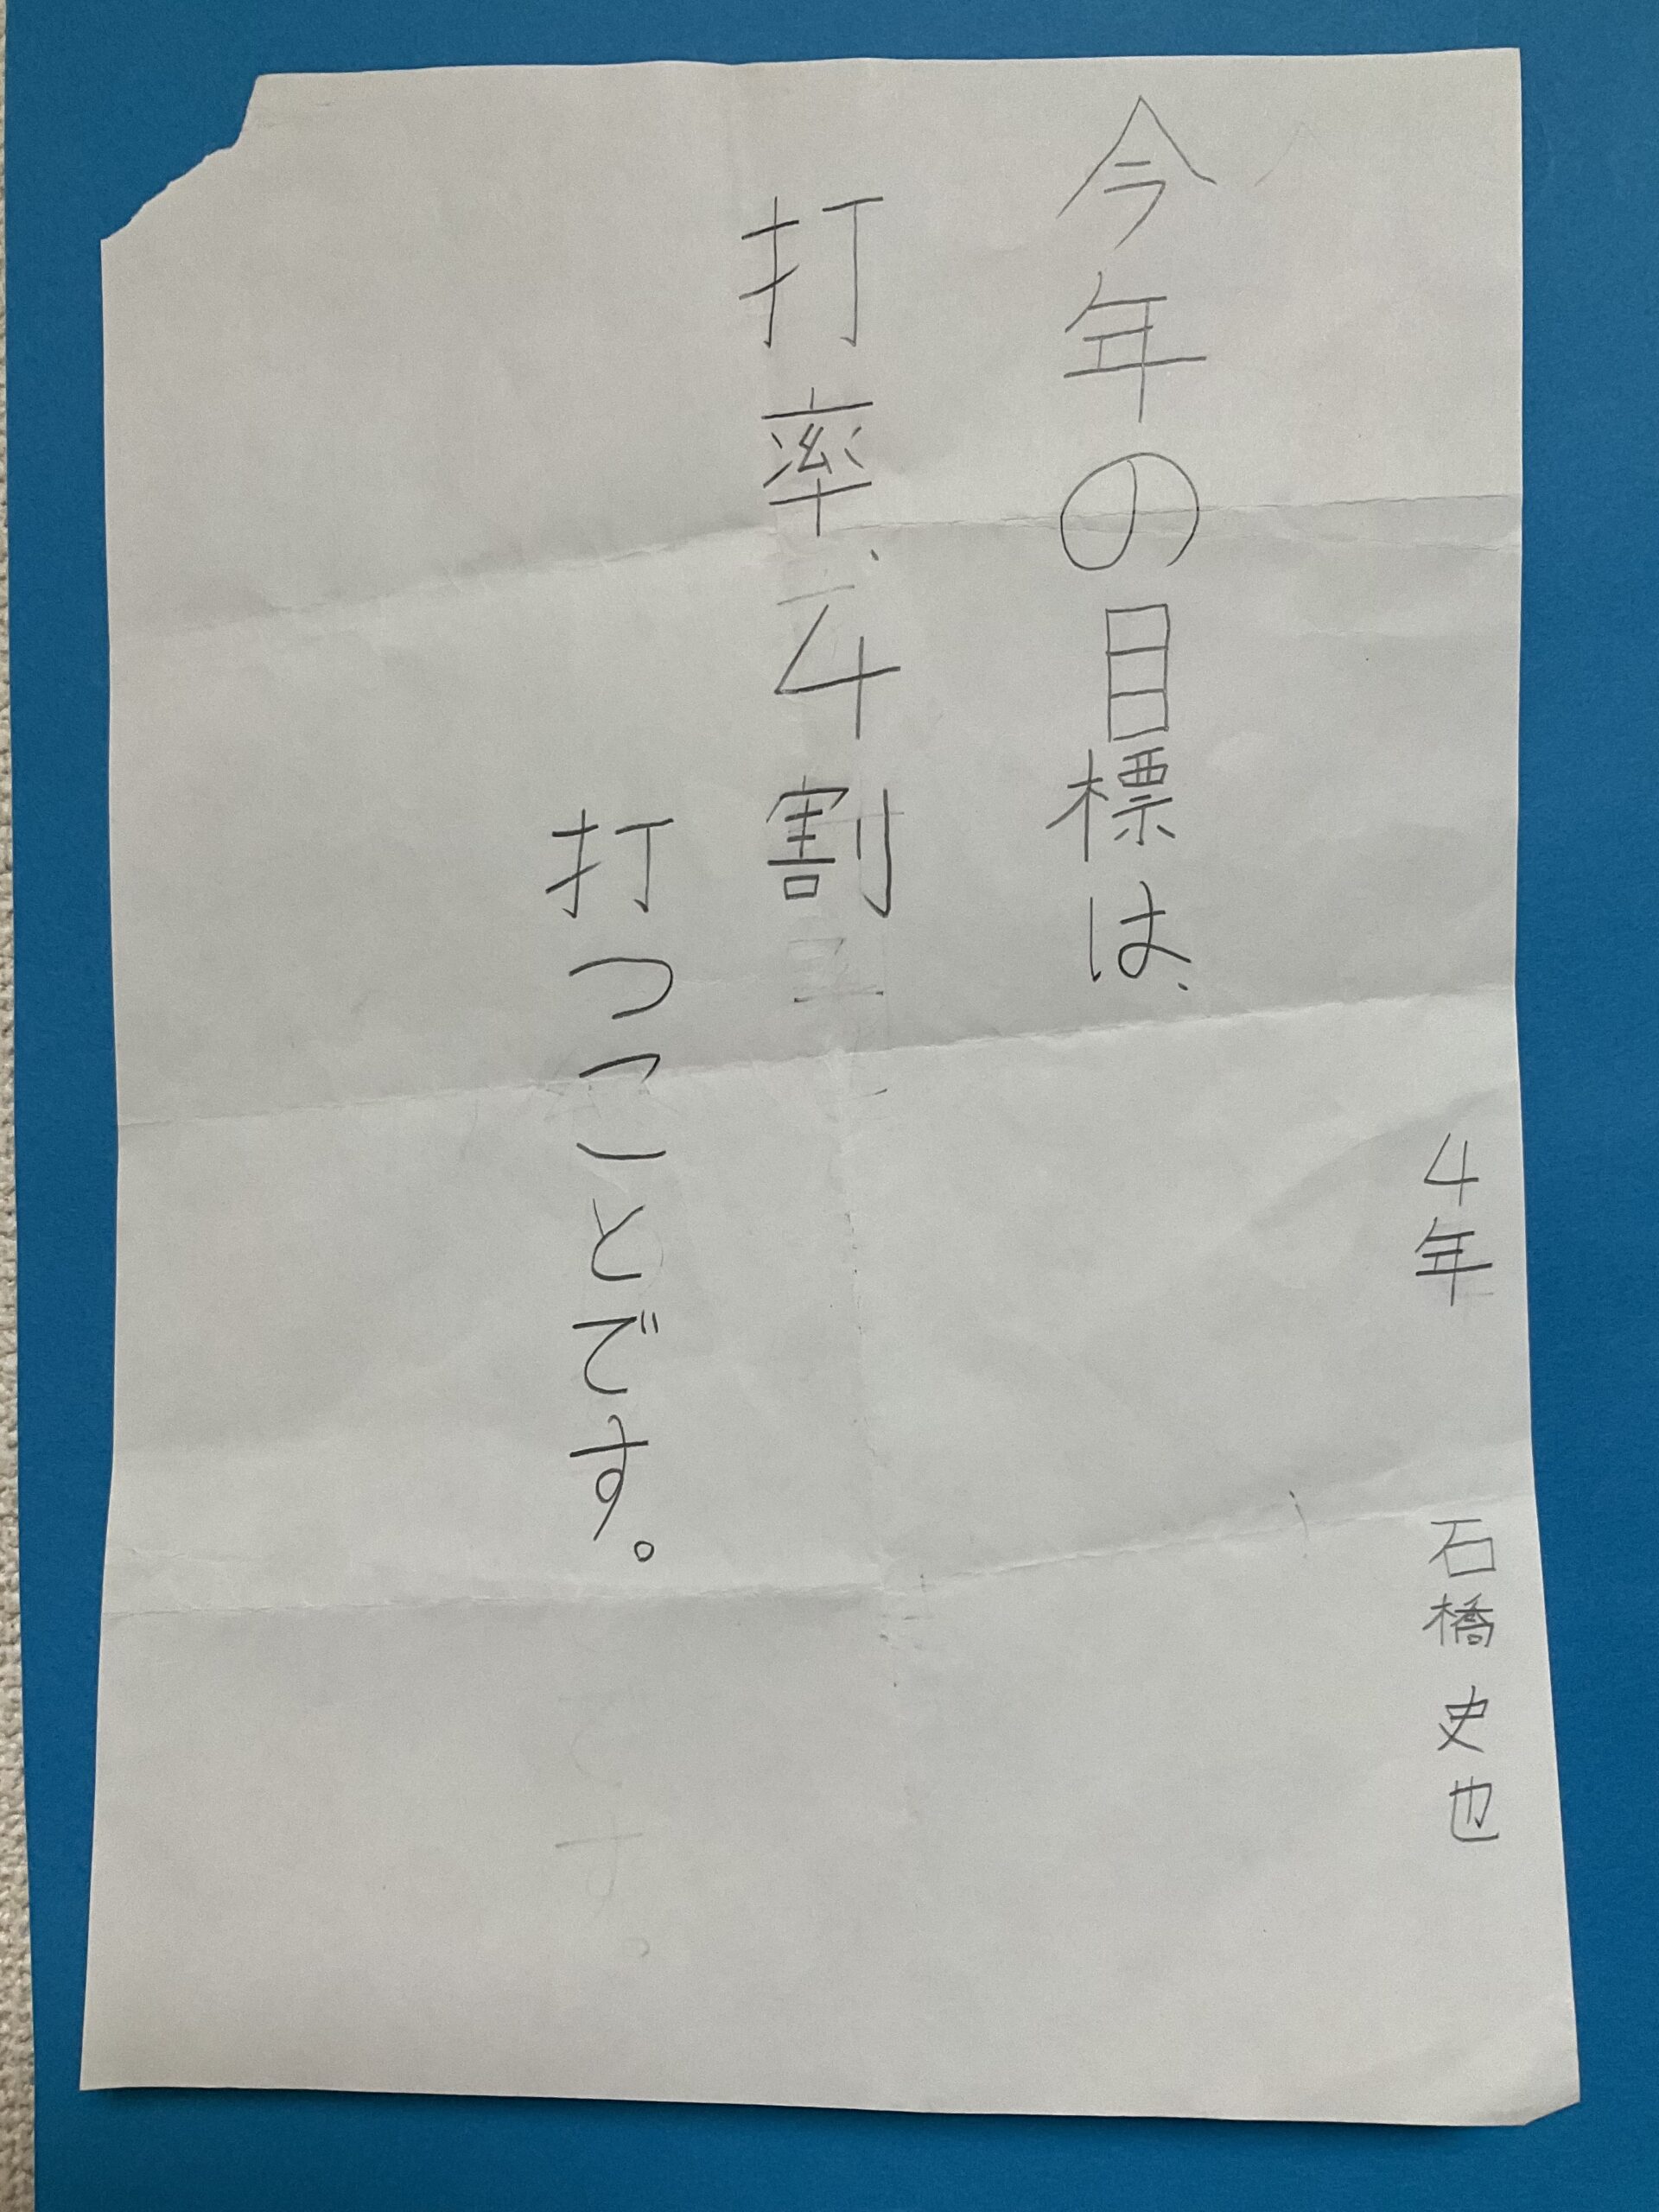 4年 石橋史也
今年の目標は、
打率、4割
打つことです。